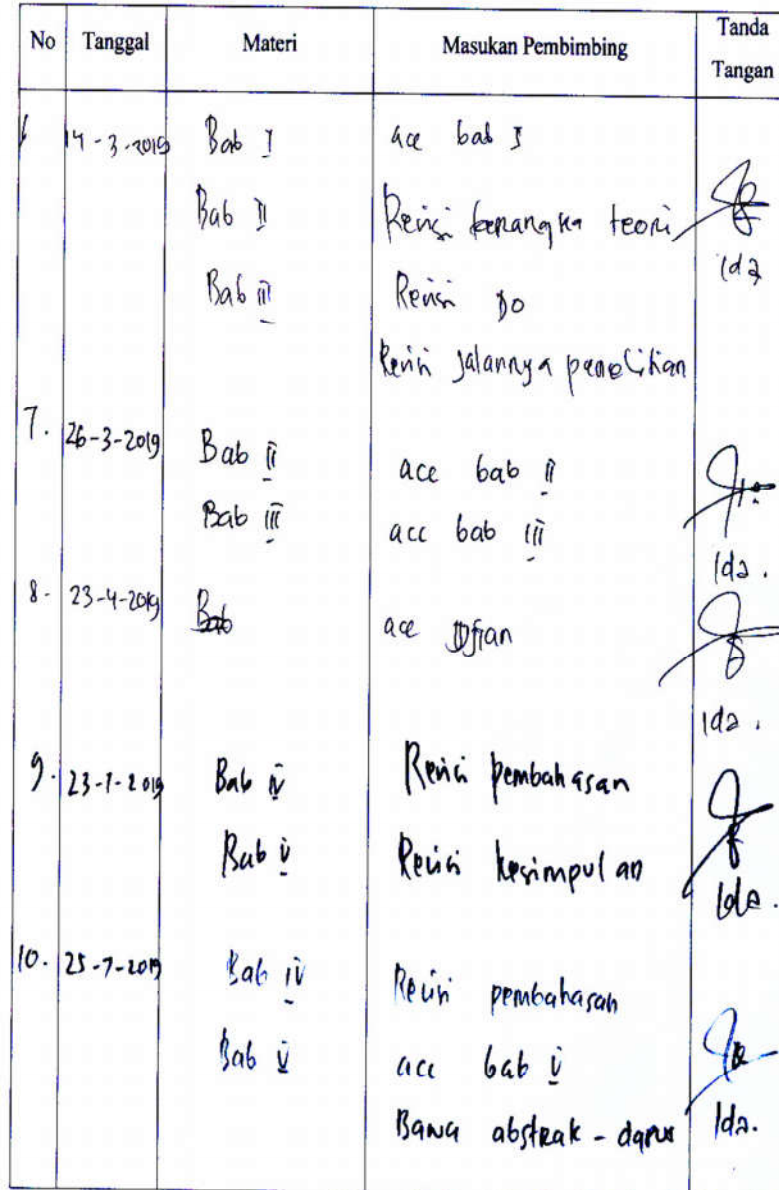 No Tanggal Materi Masukan Pembimbing Tanda Tangan
14-3-2019 Bab I acc bab I
Bab II Revisi kerangka teori
Ida
Bab III Revisi DO
Revisi jalannya penelitian
7. 26-3-2019 Bab II acc bab II
Bab III acc bab III
Ida.
8. 23-4-2019 Bab acc Ujian
Ida.
9. 23-7-2019 Bab IV Revisi pembahasan
Bab V Revisi kesimpulan
Ida.
10. 25-7-2019 Bab IV Revisi pembahasan
Bab V acc bab V
Bawa abstrak - dapus Ida.